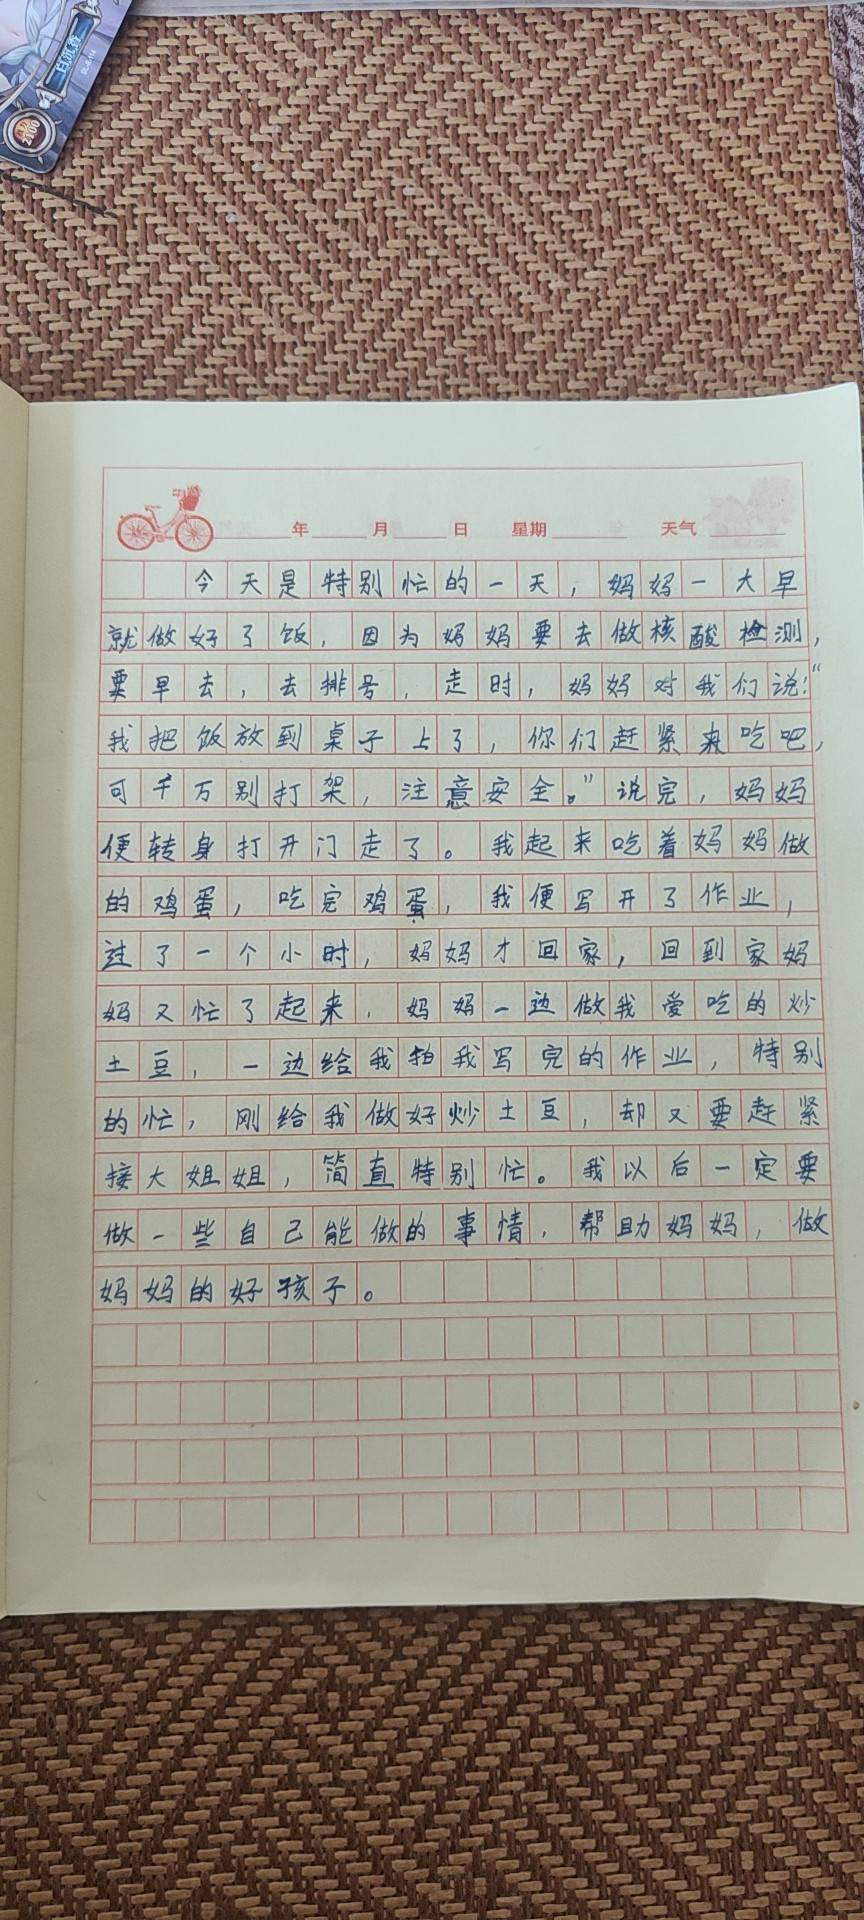 白沉香
2100
年 月 日 星期 天气
今天是特别忙的一天，妈妈一大早
就做好了饭，因为妈妈要去做核酸检测，
要早去，去排号，走时，妈妈对我们说：“
我把饭放到桌子上了，你们赶紧来吃吧，
可千万别打架，注意安全。”说完，妈妈
便转身打开门走了。我起来吃着妈妈做
的鸡蛋，吃完鸡蛋，我便写开了作业，
过了一个小时，妈妈才回家，回到家妈
妈又忙了起来，妈妈一边做我爱吃的炒
土豆，一边给我拍我写完的作业，特别
的忙，刚给我做好炒土豆，却又要赶紧
接大姐姐，简直特别忙。我以后一定要
做一些自己能做的事情，帮助妈妈，做
妈妈的好孩子。